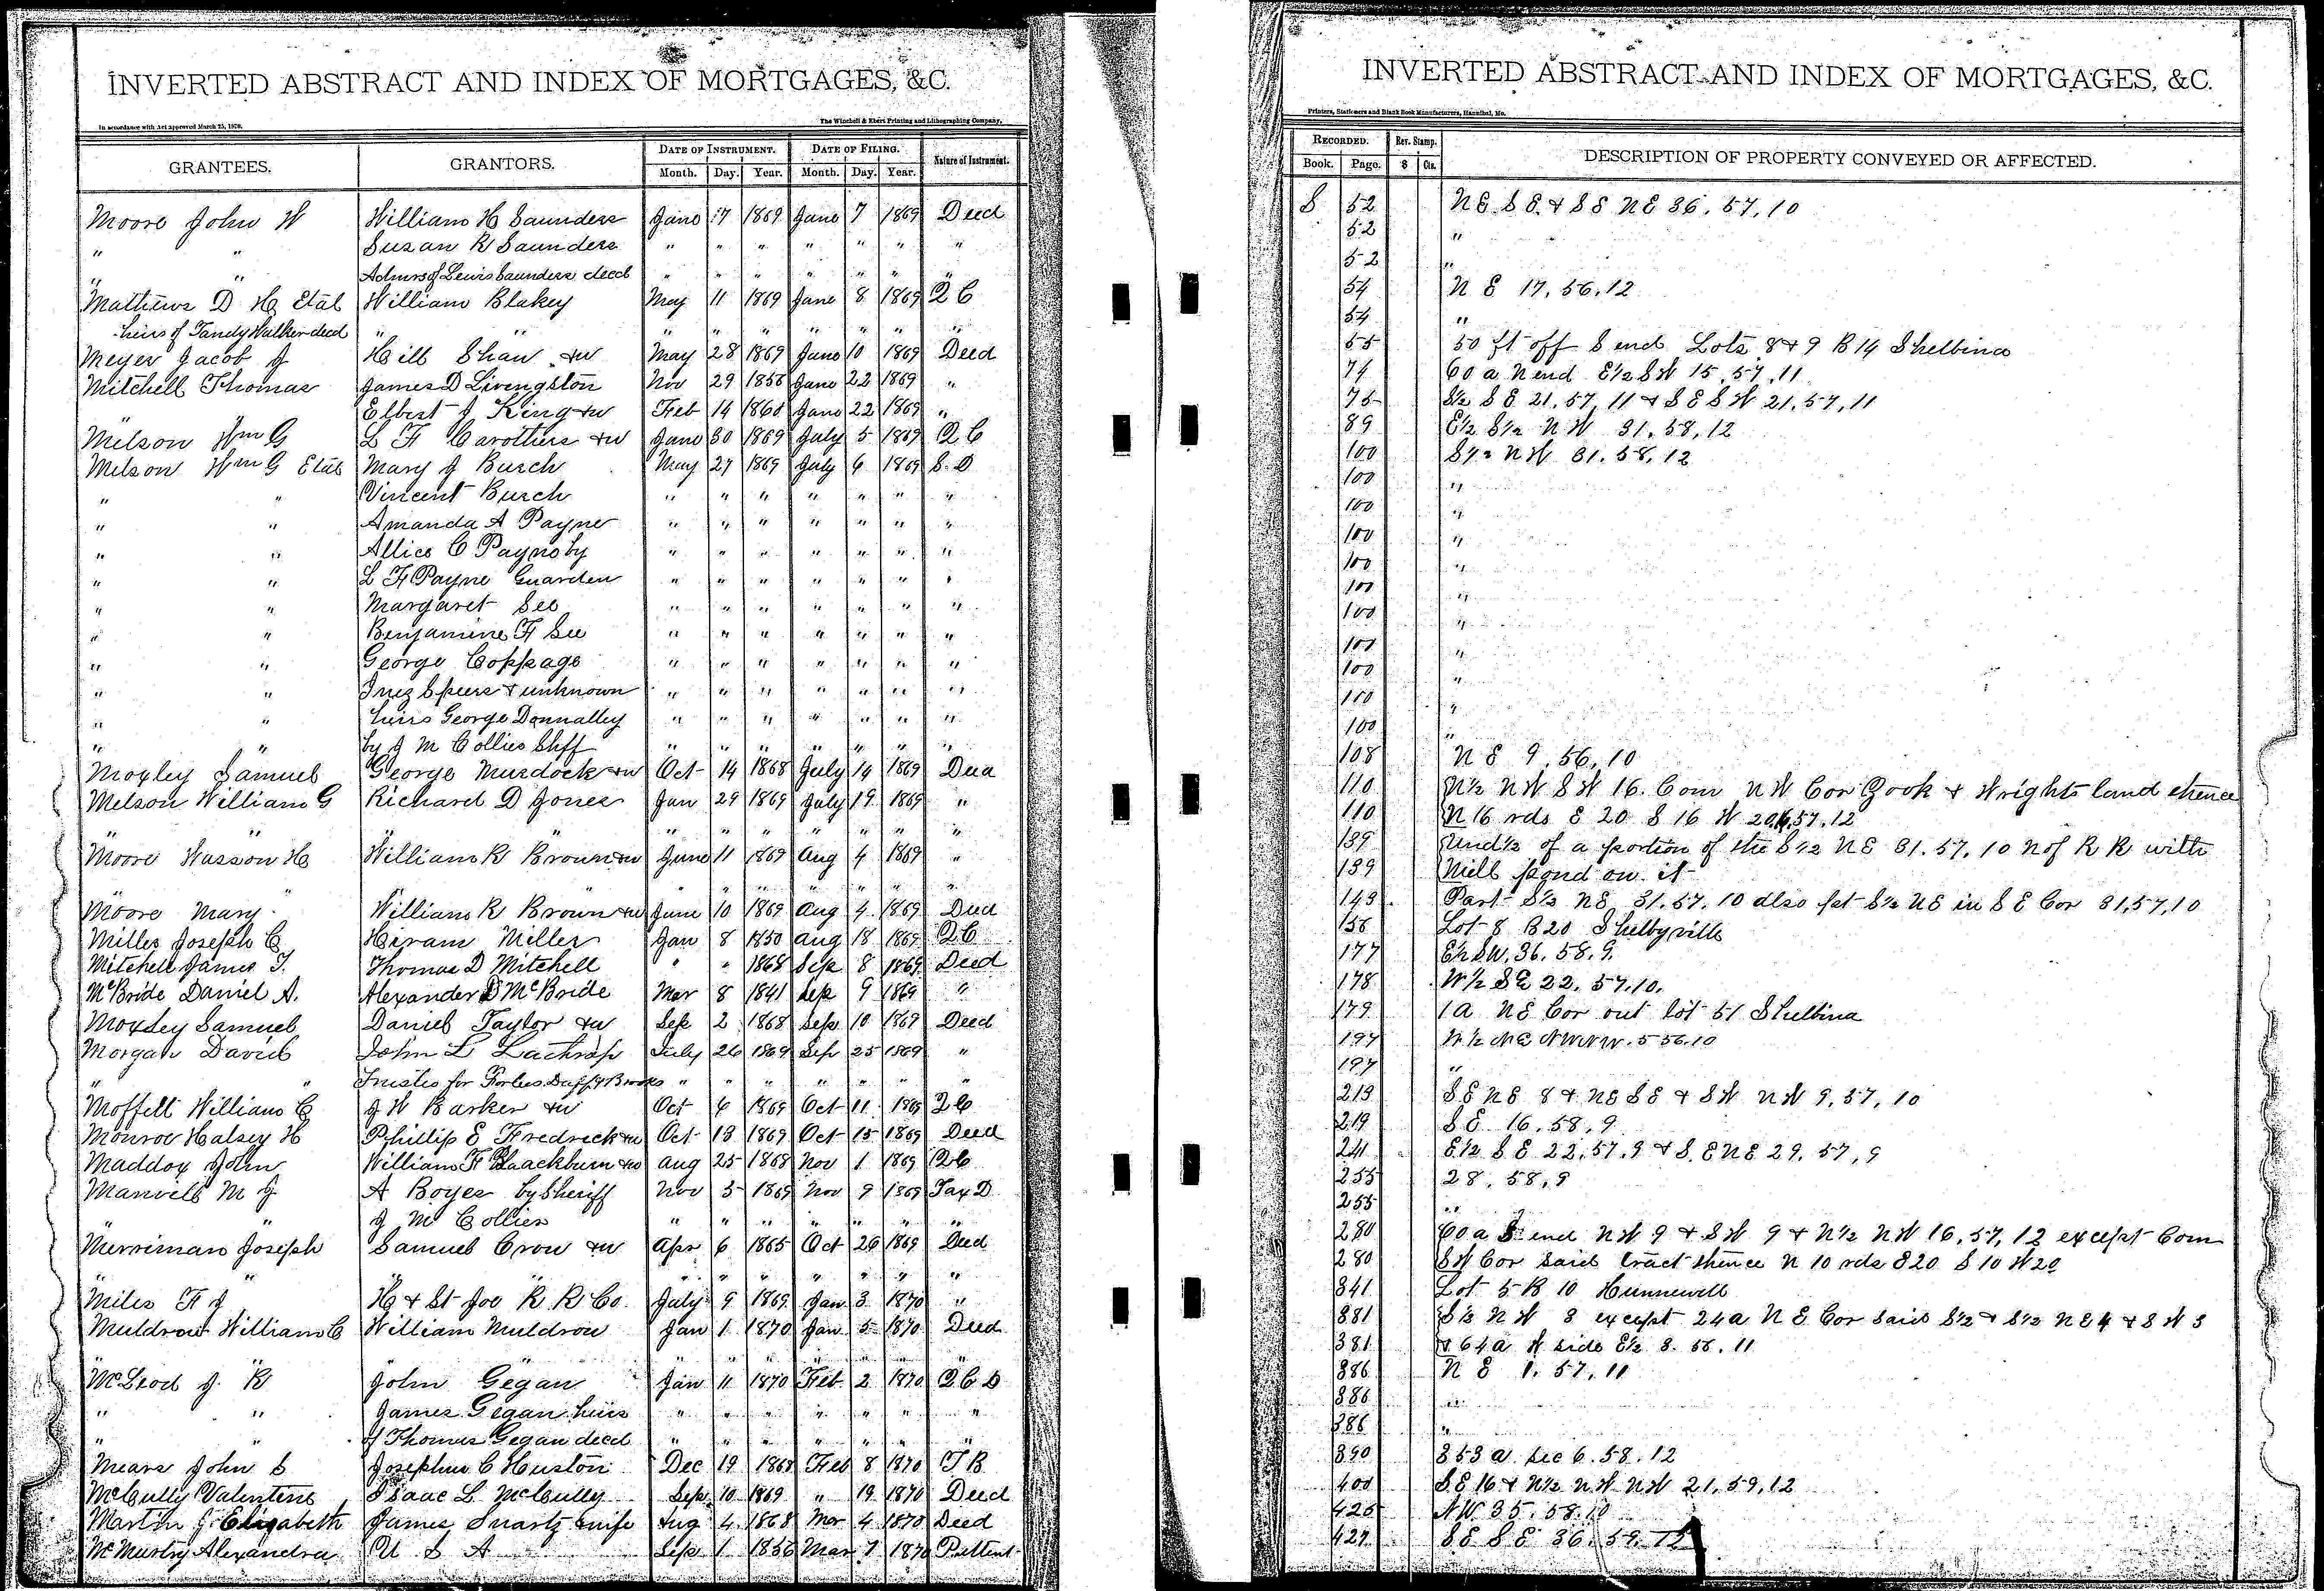 INVERTED ABSTRACT AND INDEX OF MORTGAGES, &C.
In accordance with Act approved March 25, 1870.
The Winchell & Ebert Printing and Lithographing Company,
GRANTEES. GRANTORS. DATE OF INSTRUMENT. DATE OF FILING. Nature of Instrument.
Month. Day. Year. Month. Day. Year.
Moore John W William H Saunders June 7 1869 June 7 1869 Deed
" " Susan R Saunders " " " " " " "
" " Admrs of Lewis Saunders decd " " " " " " "
Mathews D H Etal William Blakey May 11 1869 June 8 1869 Q C
heirs of Tandy Walker decd " " " " " " " " "
Meyer Jacob J Hill Shaw &w May 28 1869 June 10 1869 Deed
Mitchell Thomas James D Livingston Nov 29 1858 June 22 1869 "
Elbert J King &w Feb 14 1860 June 22 1869 "
Melson Wm G L F Carothers &w June 30 1869 July 5 1869 Q C
Melson Wm G Etal Mary J Burch May 27 1869 July 6 1869 S. D
" " Vincent Burch " " " " " " "
" " Amanda A Payne " " " " " " "
" " Allice C Payne by " " " " " " "
" " L F Payne Guarden " " " " " " "
" " Margaret See " " " " " " "
" " Benjamine F See " " " " " " "
" " George Coppage " " " " " " "
" " Inez Speers & unknown " " " " " " "
" " heirs George Donnalley " " " " " " "
" " by J M Collier Shff " " " " " " "
Moxley Samuel George Murdock &w Oct 14 1868 July 14 1869 Deed
Melson William G Richard D Jones Jan 29 1869 July 19 1869 "
" " " " " " " " "
Moore Wasson H William R Brown &w June 11 1869 Aug 4 1869 "
" " " " " " " "
Moore Mary William R Brown &w June 10 1869 Aug 4 1869 Deed
Miller Joseph C Hiram Miller Jan 8 1850 Aug 18 1869 Q C
Mitchell James T. Thomas D Mitchell " " 1868 Sep 8 1869 Deed
McBride Daniel A. Alexander McBride Mar 8 1841 Sep 9 1869 "
Moxley Samuel Daniel Taylor &w Sep 2 1868 Sep 10 1869 Deed
Morgan David John L Lathrop July 26 1869 Sep 25 1869 "
" " Trustee for Forbes Duff & Brooks " " " " " " "
Moffett William C J W Barker &w Oct 6 1869 Oct 11 1869 Q C
Monroe Halsey H Phillip E Fredrick &w Oct 13 1869 Oct 15 1869 Deed
Maddox John William F Blackburn &w Aug 25 1868 Nov 1 1869 Q C
Manvell M J A Boyer by Sheriff Nov 5 1869 Nov 9 1869 Tax D
J M Collier " " " " " " "
Merriman Joseph Samuel Crow &w Apr 6 1865 Oct 26 1869 Deed
" " " " " " " " "
Miles F J H & St Joe R R Co. July 9 1869 Jan 3 1870 "
Muldrow William C William Muldrow Jan 1 1870 Jan 5 1870 Deed
" " " " " " " " "
McLeod J. R John Gegan Jan 11 1870 Feb 2 1870 Q C D
" " James Gegan heirs " " " " " " "
" " of Thomas Gegan decd " " " " " " "
Mears John S Josephus C Huston Dec 19 1868 Feb 8 1870 T B
McCully Valentine Isaac L McCully Sep 10 1869 " 19 1870 Deed
Martin J Elizabeth James Swartz &wife Aug 4 1868 Mar 4 1870 Deed
McMurtry Alexandra U S A Sep 1 1856 Mar 7 1870 Pattent
INVERTED ABSTRACT AND INDEX OF MORTGAGES, &C.
Printers, Stationers and Blank Book Manufacturers, Hannibal, Mo.
RECORDED. Rev. Stamp. DESCRIPTION OF PROPERTY CONVEYED OR AFFECTED.
Book. Page. $ Cts.
S 52 NE SE & SE NE 36, 57, 10
52 "
52 "
54 N E 17, 56, 12
54 "
55 50 ft off S end Lots 8 & 9 B 14 Shelbina
74 60 a N end E½ SW 15, 57, 11
75 S½ SE 21, 57, 11 & SE SW 21, 57, 11
89 E½ S½ N W 31, 58, 12
100 S½ NW 31, 58, 12
100 "
100 "
100 "
100 "
100 "
100 "
100 "
100 "
100 "
100 "
108 N E 9, 56, 10
110 N½ NW SW 16. Com NW Cor Gook & Wrights land thence
110 N 16 rds E 20 S 16 W 20, 57, 12
139 Und½ of a portion of the S½ NE 31. 57, 10 N of R R with
139 Mill pond on it
143 Part S½ NE 31. 57. 10 also pt S½ NE in SE Cor 31, 57, 10
156 Lot 8 B 20 Shelbyville
177 E½ SW. 36. 58. 9.
178 W½ SE 22. 57. 10.
179 1 a NE Cor out lot 51 Shelbina
197 W½ NE NWNW. 5 56. 10
197 "
213 SE NE 8 & NE SE & SW NW 9, 57, 10
219 SE 16. 58. 9
241 E½ SE 22, 57, 9 & SE NE 29, 57, 9
255 28, 58, 9
255 "
280 60 a S end NW 9 & SW 9 & N½ NW 16, 57, 12 except Com
280 SW Cor said tract thence N 10 rds E20 S 10 W 20
341 Lot 5 B 10 Hunnewell
381 S½ NW 3 except 24 a N E Cor said S½ & S½ NE 4 & SW 3
381 & 64 a W side E½ 8. 56. 11
386 N E 1. 57, 11
386 "
386 "
390 353 a. Sec 6. 58. 12
400 SE 16 & N½ NW NW 21, 59, 12
425 NW 35. 58. 10
427 SE SE 36, 59, 12